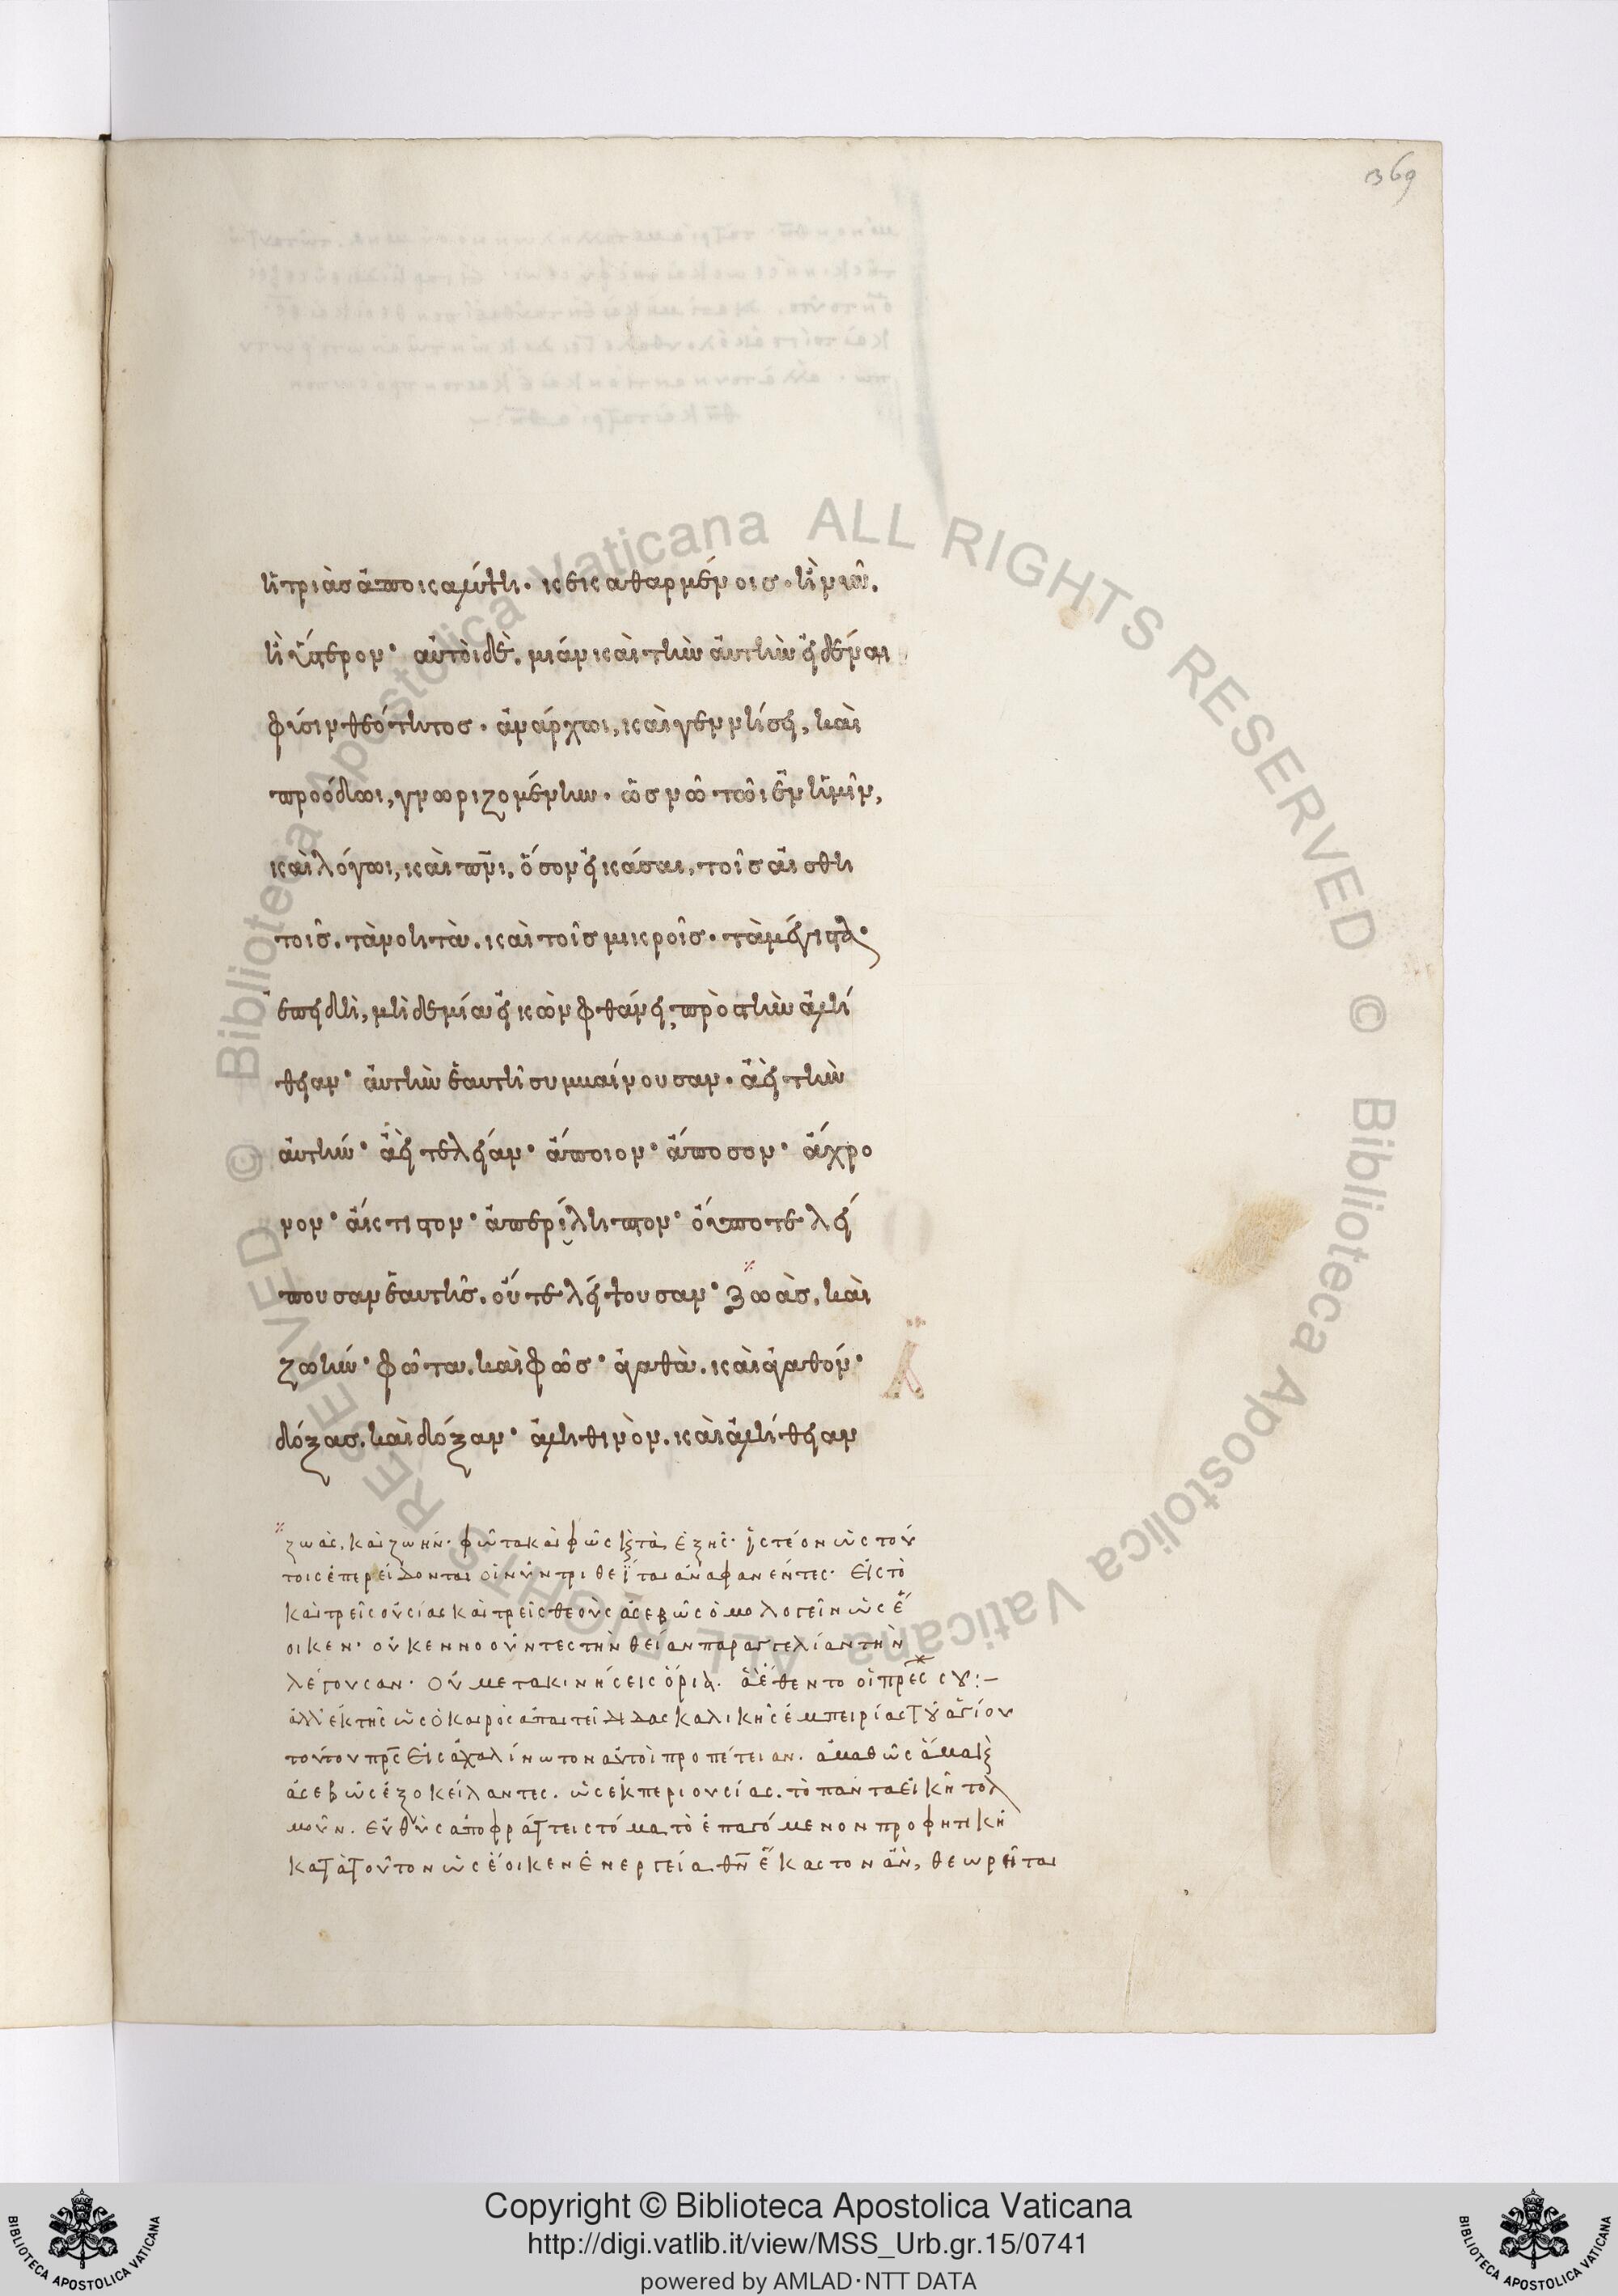 369
ἡ τριὰς ἀποκαλύπτει. κεκαθαρμένοις. ἢ νῦν.
ἢ ὕστερον· αὐτοὶ δὲ. μίαν καὶ τὴν αὐτὴν εἰδέναι
φύσιν θεότητος. ἀνάρχωι, καὶ γεννήσει, καὶ
προόδωι, γνωριζομένην. ὡς νῶ τῶι ἐν ἡμῖν,
καὶ λόγωι, καὶ πνι. ὅσον εἰκάσαι. τοῖς αἰσθη
τοῖς. τὰ νοητὰ. καὶ τοῖς μικροῖς. τὰ μέγιστα·
ἐπειδὴ, μηδεμία εἰκὼν φθάνει, πρὸς τὴν ἀλή
θειαν· αὐτὴν ἑαυτῆ συμβαίνουσαν. ἀεὶ τὴν
αὐτήν· ἀεὶ τελείαν· ἄποιον· ἄποσον· ἄχρο
νον· ἄκτιστον· ἀπερίληπτον· οὔποτε λεί
πουσαν ἑαυτῆς. οὔτε λείψουσαν· ζωὰς. καὶ
ζωήν· φῶτα. καὶ φῶς· ἀγαθὰ. καὶ ἀγαθόν·
δόξας. καὶ δόξαν· ἀληθινὸν. καὶ ἀλήθειαν
ζωὰς. καὶ ζωήν. φῶτα καὶ φῶς καὶ τὰ ἑξῆς· ἰστέον ὡς τού
τοις ἐπερείδονται οἱ νῦν τριθεῗται ἀναφανέντες. εἰς τὸ
καὶ τρεῖς οὐσίας καὶ τρεῖς θεοὺς ἀσεβῶς ὁμολογεῖν ὡς ἔ
οικεν. οὐκ ἐννοοῦντες τὴν θείαν παραγγελίαν τὴν
λέγουσαν. οὐ μετακινήσεις ὅρια. ἃ ἔθεντο οἱ πρές σου:–
ἀλλ' ἐκ τῆς ὡς ὁ καιρὸς ἀπαιτεῖ διδασκαλικῆς ἐμπειρίας τοῦ ἁγίου
τούτου πρς εἰς ἀχαλίνωτον αὐτοὶ προπέτειαν. ἀμαθῶς ἅμα καὶ
ἀσεβῶς ἐξοκείλαντες. ὡς ἐκ περιουσίας. τὸ πάντα εἰκῆ τολ
μοῦν. εὐθὺς ἀποφράττει στόμα. τὸ ἐπαγόμενον προφητικῆ
κατὰ τοῦτον ὡς ἔοικεν ἐνεργεία. θν ἕκαστον ἂν, θεωρῆται
© Biblioteca Apostolica Vaticana ALL RIGHTS RESERVED © Biblioteca Apostolica Vaticana ALL RIGHTS RESERVED
BIBLIOTECA APOSTOLICA VATICANA
Copyright © Biblioteca Apostolica Vaticana
http://digi.vatlib.it/view/MSS_Urb.gr.15/0741
powered by AMLAD·NTT DATA
BIBLIOTECA APOSTOLICA VATICANA